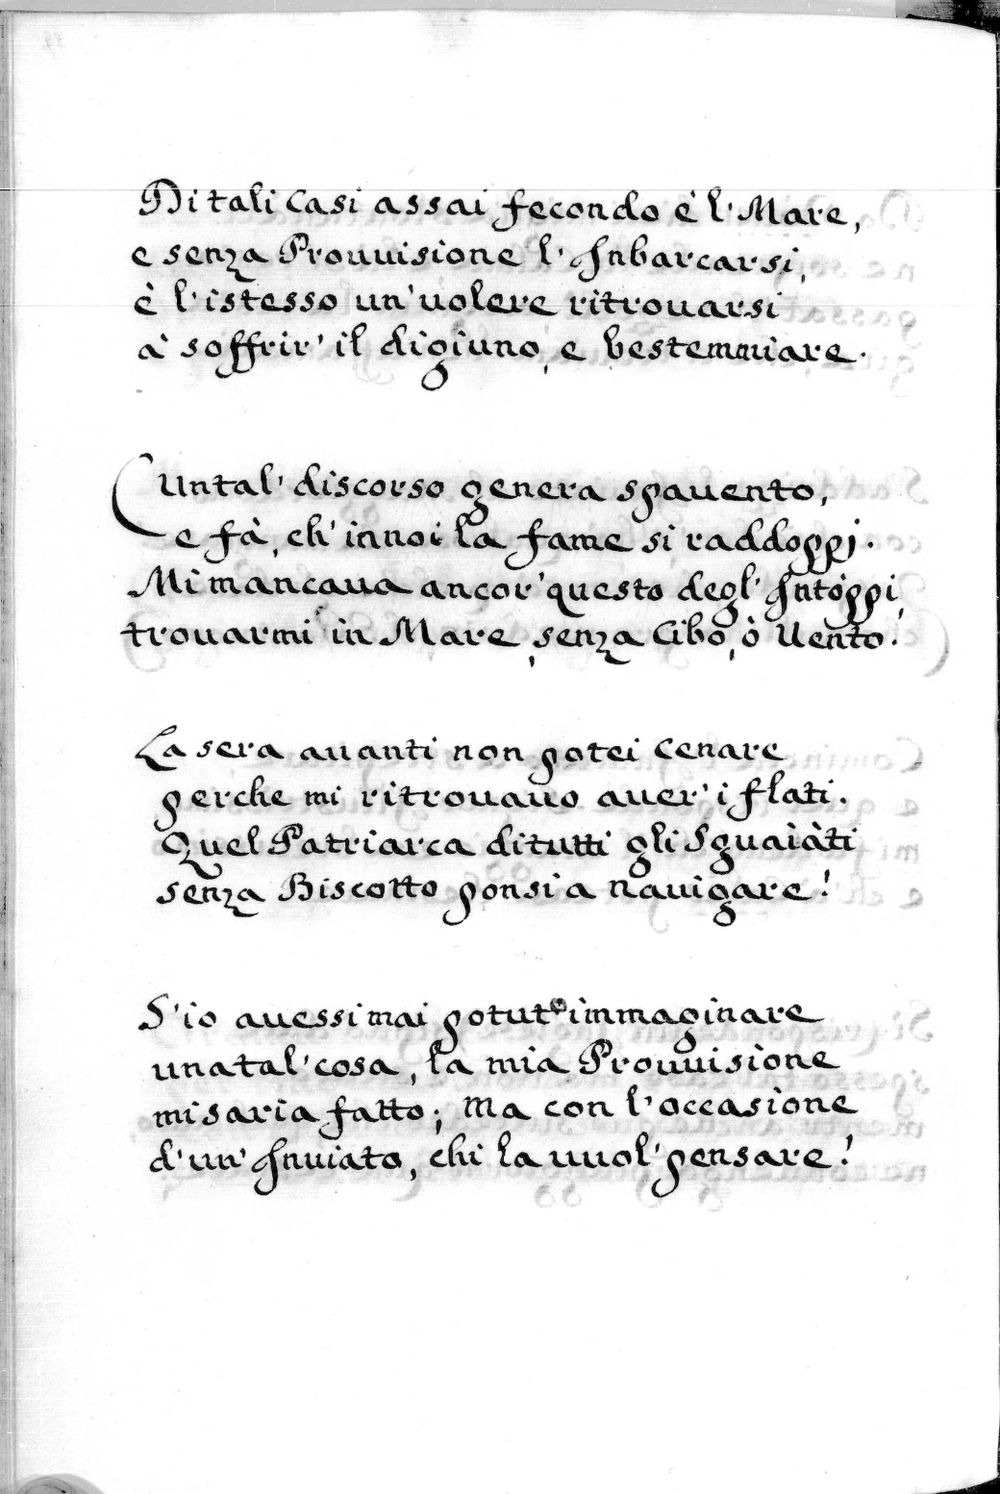 Di tali Casi assai fecondo è l'Mare,
e senza Prouuisione l'Inbarcarsi,
è l'istesso un'uolere ritrouarsi
à soffrir' il digiuno, e bestemmiare.
Un tal' discorso genera spauento,
e fà, ch'in noi la fame si raddoppi.
Mi mancaua ancor'questo degl'Intoppi,
trouarmi in Mare, senza Cibo, ò Uento!
La sera auanti non potei cenare
perche mi ritrouauo auer'i flati.
Quel Patriarca di tutti gli Sguaiàti
senza Biscotto ponsi a nauigare!
S'io auessi mai potuto immaginare
una tal'cosa, la mia Prouuisione
mi saria fatto; Ma con l'occasione
d'un'Inuiato, chi la uuol'pensare!